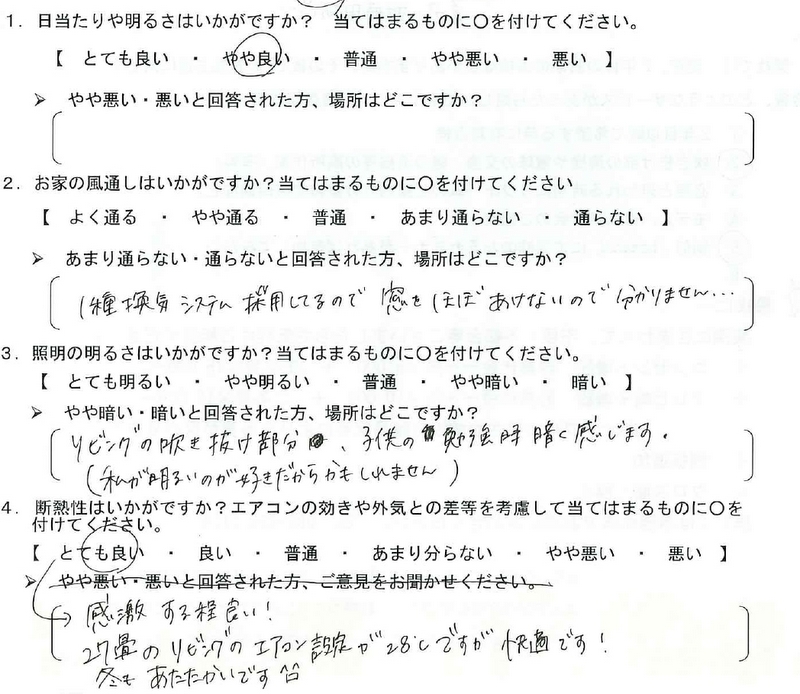 1．日当たりや明るさはいかがですか？　当てはまるものに〇を付けてください。
【　とても良い　・　やや良い　・　普通　・　やや悪い　・　悪い　】
➢　やや悪い・悪いと回答された方、場所はどこですか？
2．お家の風通しはいかがですか？当てはまるものに〇を付けてください
【　よく通る　・　やや通る　・　普通　・　あまり通らない　・　通らない　】
➢　あまり通らない・通らないと回答された方、場所はどこですか？
1種換気システム採用してるので窓をほぼあけないので分かりません…
3．照明の明るさはいかがですか？当てはまるものに〇を付けてください。
【　とても明るい　・　やや明るい　・　普通　・　やや暗い　・　暗い　】
➢　やや暗い・暗いと回答された方、場所はどこですか？
リビングの吹き抜け部分、子供の勉強時暗く感じます。
（私が明るいのが好きだからかもしれません）
4．断熱性はいかがですか？エアコンの効きや外気との差等を考慮して当てはまるものに〇を
付けてください。
【　とても良い　・　良い　・　普通　・　あまり分らない　・　やや悪い　・　悪い　】
➢　やや悪い・悪いと回答された方、ご意見をお聞かせください。
感激する程良い！
27畳のリビングのエアコン設定が28℃ですが快適です！
冬もあたたかいです^^